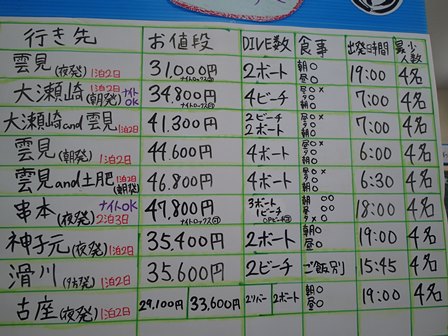 行き先 お値段 DIVE数 食事 出発時間 最少人数
雲見(夜発) 1泊2日 31,000円 2ボート 朝○ 昼○ 19:00 4名
大瀬崎(朝発) ナイトOK 1泊2日 34,800円 4ビーチ 7:00 4名
大瀬崎and雲見 1泊2日 41,300円 2ビーチ 2ボート 7:00 4名
雲見(朝発) 1泊2日 44,600円 4ボート 6:00 4名
雲見and土肥(朝発) 1泊2日 46,800円 4ボート 6:30 4名
串本(夜発) ナイトOK 2泊3日 47,800円 3ボート 1ビーチ 18:00 4名
神子元(夜発) 1泊2日 35,400円 2ボート 朝○ 昼○ 19:00 4名
滑川(夕発) 1泊2日 35,600円 2ビーチ ご飯別 15:45 4名
古座(夜発) 1泊2日 29,100円 33,600円 2リバー 2ボート 朝○ 昼○ 19:00 4名